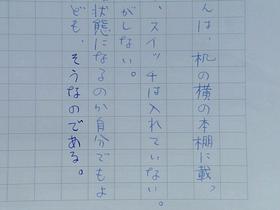 んは、机の横の本棚に載っ
、スイッチは入れていない。
がしない。
状態になるのか自分でもよ
ども、そうなのである。